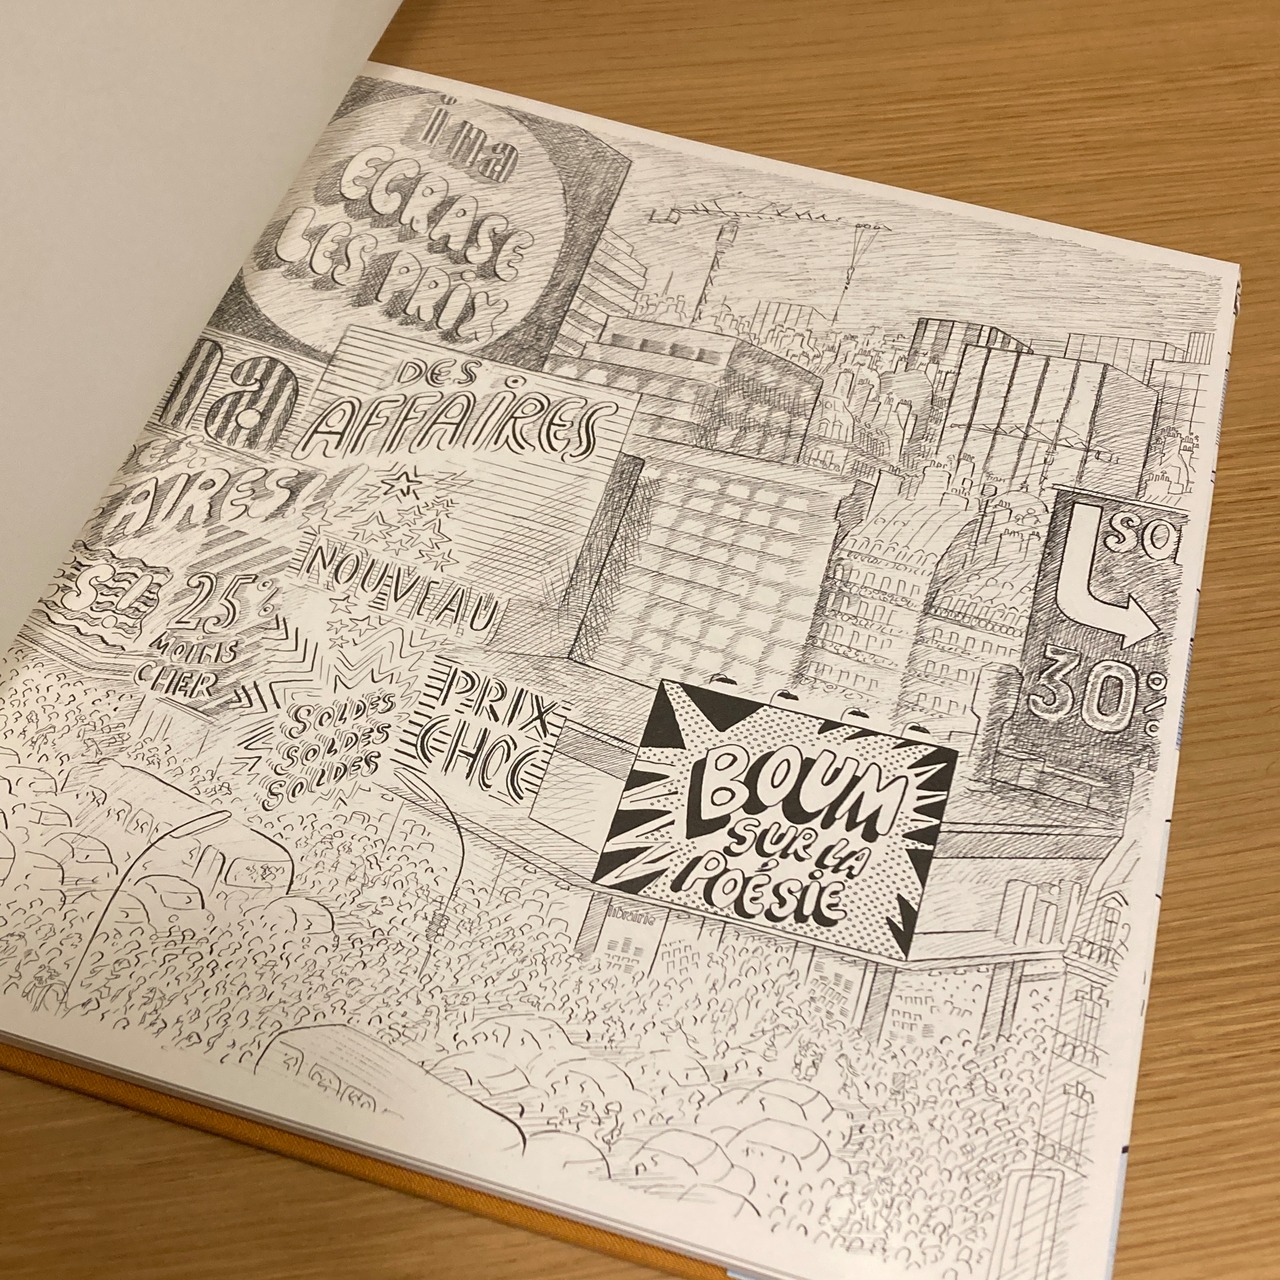 ina
ECRASE
LES PRIX
na
DES
AFFAIRES
DES
AIRES
NOUVEAU
25%
MOINS
CHER
SOLDES
SOLDES
SOLDES
PRIX
CHOC
SO
30%
BOUM
SUR LA
POÉSIE
librairie